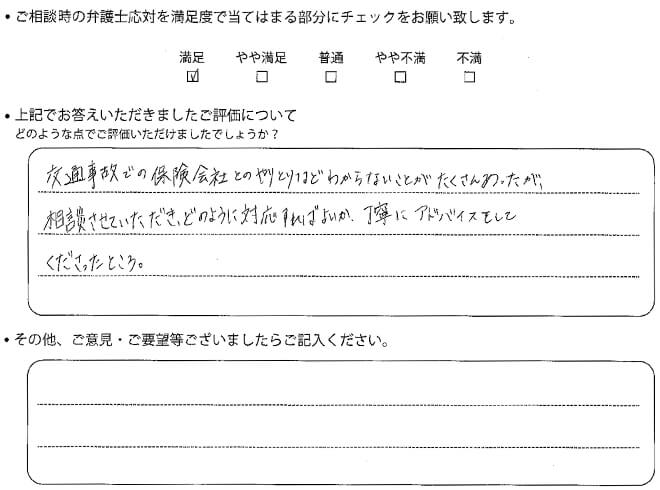 • ご相談時の弁護士応対を満足度で当てはまる部分にチェックをお願い致します。
満足 やや満足 普通 やや不満 不満
☑ ☐ ☐ ☐ ☐
• 上記でお答えいただきましたご評価について
どのような点でご評価いただけましたでしょうか？
交通事故での保険会社とのやりとりなどわからないことがたくさんあったが、
相談させていただき、どのように対応すればよいか、丁寧にアドバイスをして
くださったところ。
• その他、ご意見・ご要望等ございましたらご記入ください。